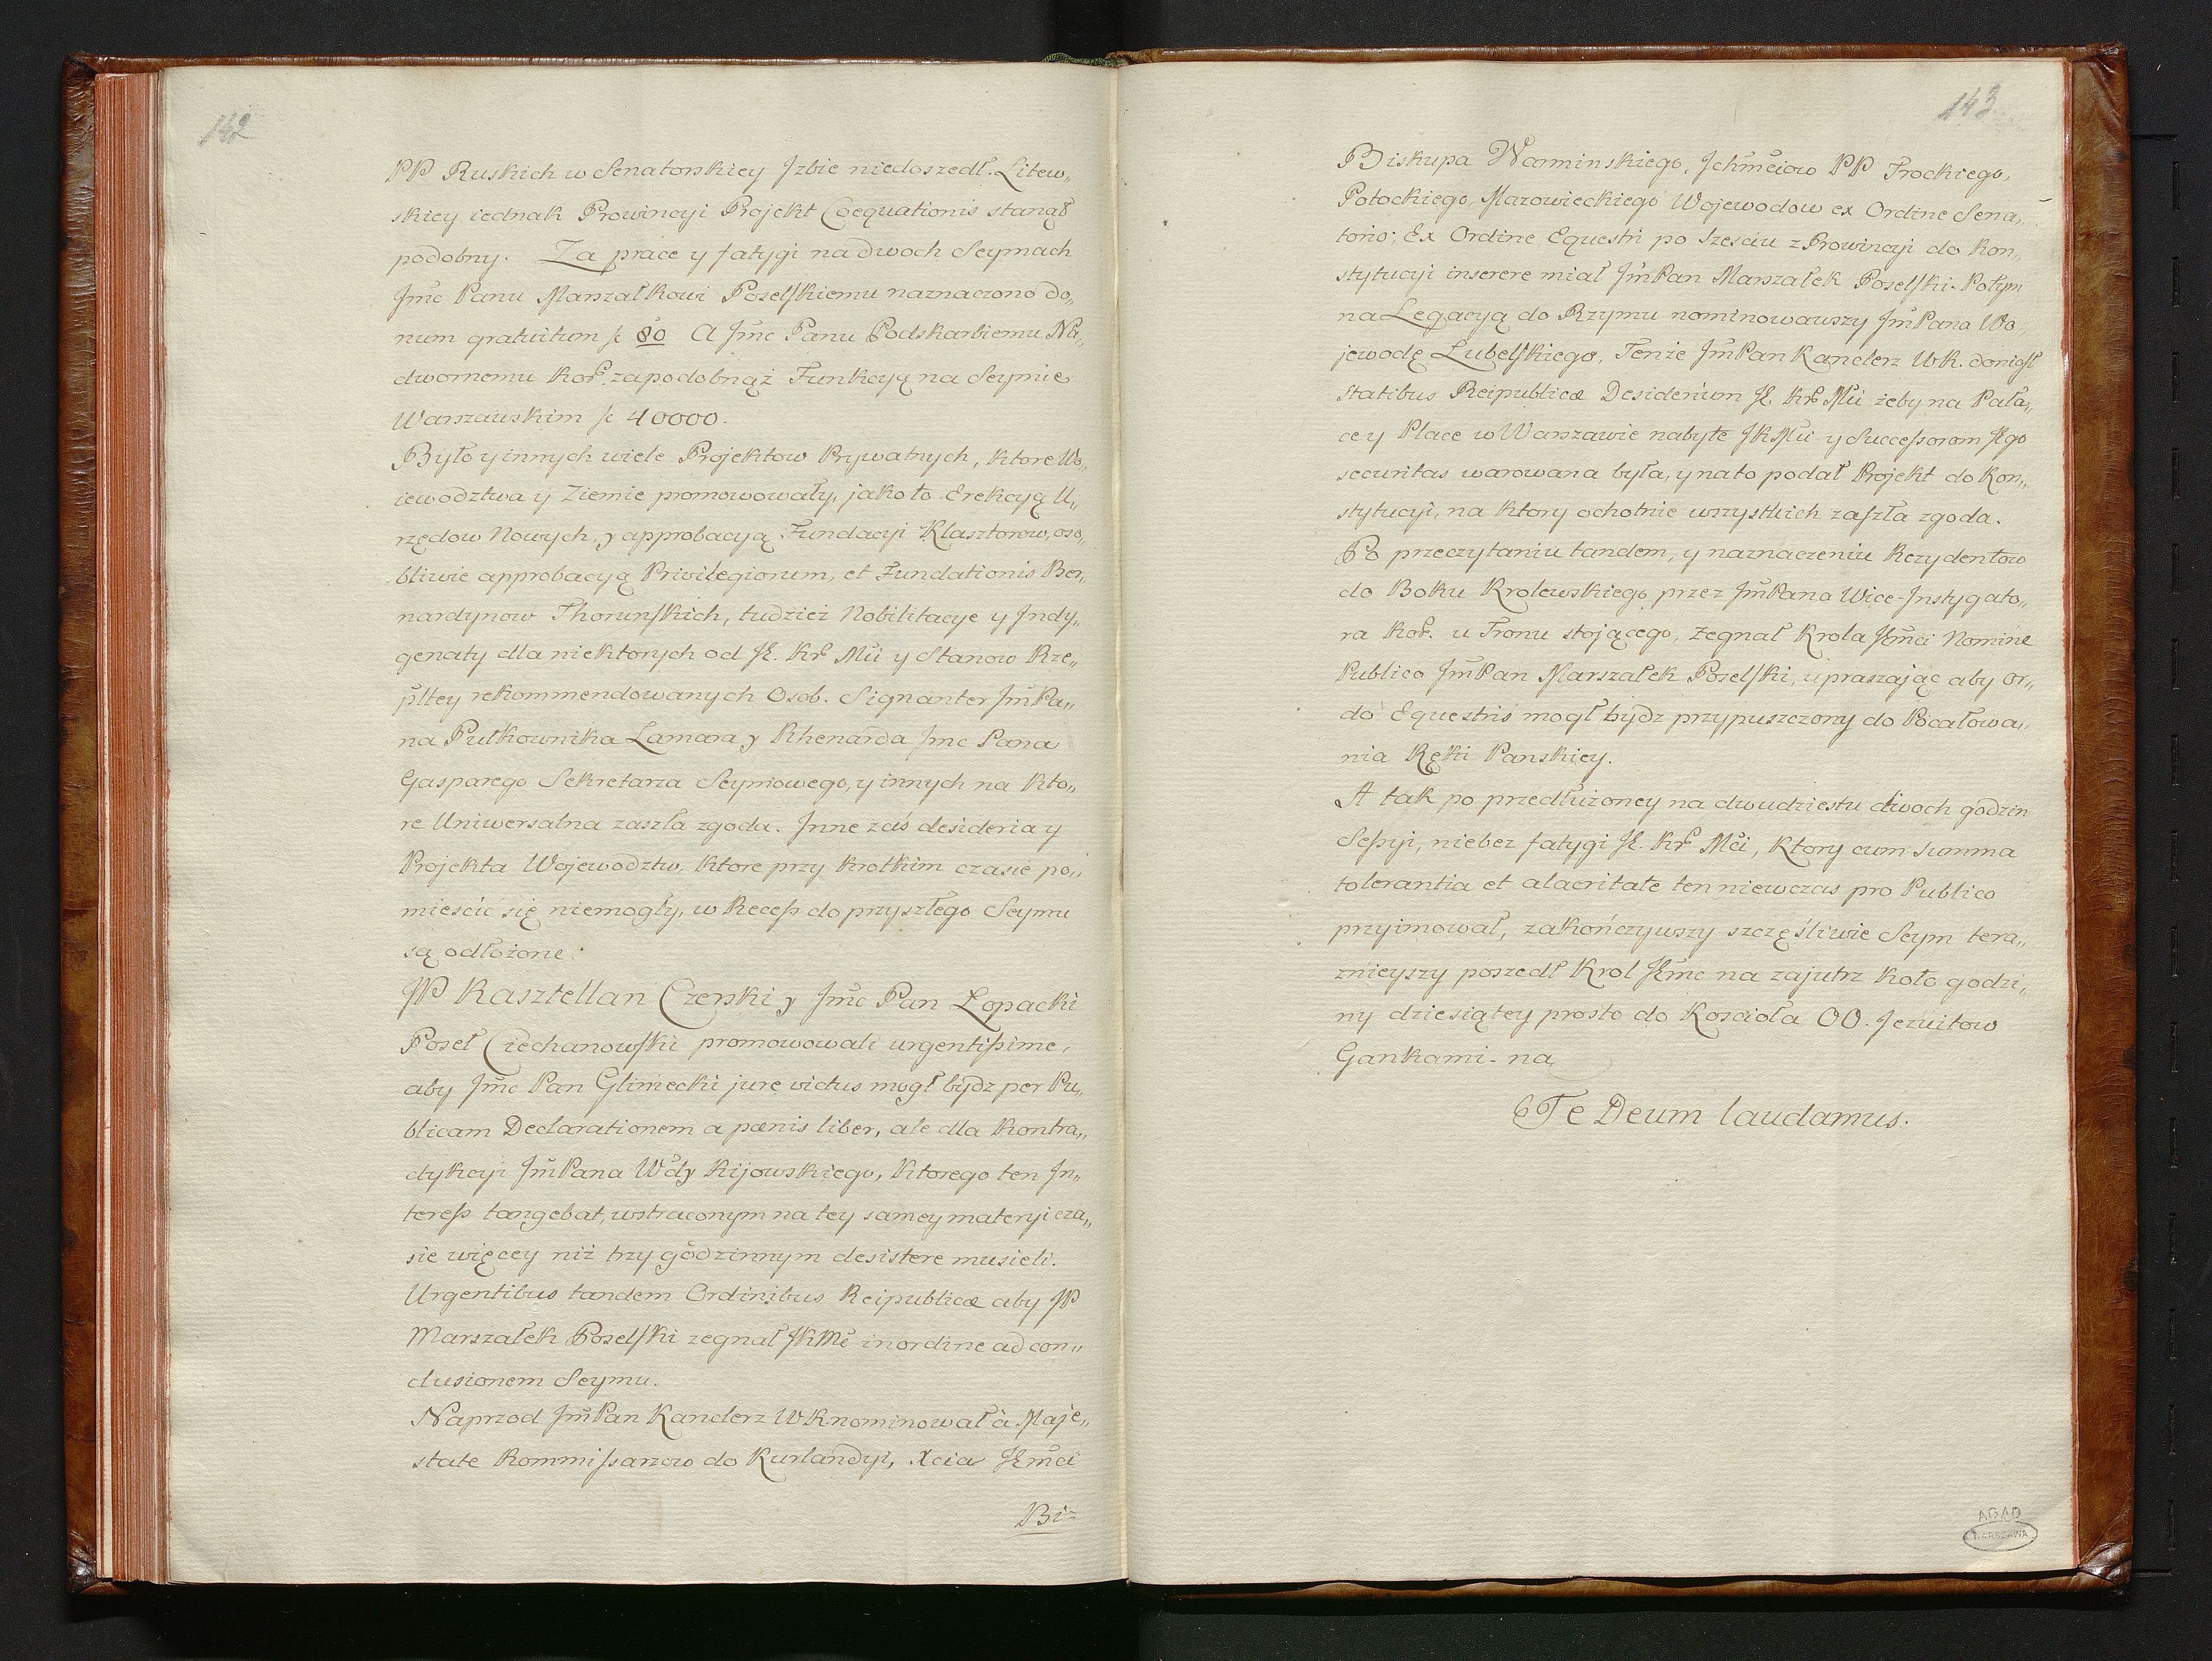 142
PP Ruskich w Senatorskiey Jzbie niedoszedł. Litew„
skiey iednak Prowincyi Projekt Coequationis stanął
podobny. Za prace y fatygi na dwoch Seymach
Jmc Panu Marszałkowi Poselskiemu naznaczono do„
num gratuitum 80 A Jmc Panu Podskarbiemu Na„
dwornemu Kor. za podobnąż Funkcyą na Seymie
Warszawskim 40000.
Było y innych wiele Projektow Prywatnych, ktore Wo„
iewodztwa y Ziemie promowowały, jako to Erekcyą U„
rzędow Nowych, y approbacyą Fundacyi Klasztorow, oso„
bliwie approbacyą Privilegiorum, et Fundationis Ber„
nardynow Thorunskich, tudzież Nobilitacye y Jndy„
genaty dla niektorych od JE. Kr Mci y Stanow Rze„
pltey rekommendowanych Osob. Signanter JmPa„
na Pułkownika Lamara y Rhenarda Jmc Pana
Gasparego Sekretarza Seymowego, y innych na kto„
re Uniwersalna zaszła zgoda. Jnne zaś desideria y
Projekta Wojewodztw, ktore przy krotkim czasie po„
mieścić się niemogły, w Recess do przyszłego Seymu
są odłożone.
JP Kasztellan Czerski y Jmc Pan Łopacki
Poseł Ciechanowski promowowali urgentissime,
aby Jmc Pan Gliniecki jure victus mogł bydz per Pu„
blicam Declarationem a pœnis liber, ale dla kontra„
dykcyi JmPana Wdy Kijowskiego, ktorego ten Jn„
teress tangebat, wstraconym na tey samey materyi cza„
sie więcey niż trzy godzinnym desistere musieli.
Urgentibus tandem Ordinibus Reipublicæ aby JP
Marszałek Poselski zegnał JKMc in ordine ad con„
clusionem Seymu.
Naprzod JmPan Kanclerz WK nominował à Maje„
state Kommissarzow do Kurlandyi, Xcia JEmci
Bi=
143
Biskupa Warminskiego, Jchmciow PP Trockiego,
Potockiego, Mazowieckiego Wojewodow ex Ordine Sena„
torio; Ex Ordine Equestri po szesciu z Prowincyi do Kon„
stytucyi inserere miał JmPan Marszałek Poselski. Potym
na Legacyą do Rzymu nominowawszy JmPana Wo„
jewodę Lubelskiego, Tenże JmPan Kanclerz WK. doniosł
Statibus Reipublicæ Desiderium JE. Kr Mci żeby na Pała„
ce y Place w Warszawie nabyte JKMci y Successorom JEgo
securitas warowana była, y na to podał Projekt do Kon„
stytucyi, na ktory ochotnie wszystkich zaszła zgoda.
Po przeczytaniu tandem, y naznaczeniu Rezydentow
do Boku Krolewskiego przez JmPana Wice-Jnstygato„
ra Kor. u Tronu stojącego, żegnał Krola JEmci Nomine
Publico JmPan Marszałek Poselski, upraszając aby or„
do Equestris mogł bydz przypuszczony do Pocałowa„
nia Ręki Panskiey.
A tak po przedłużoney na dwudziestu dwoch godzin
Sessyi, niebez fatygi JE. Kr Mci, ktory cum summa
tolerantia et alacritate ten niewczas pro Publico
przyimował, zakończywszy szczęśliwie Seym tera„
znieyszy poszedł Krol JEmc na zajutrz koło godzi„
ny dziesiątey prosto do Kosciola OO. Jezuitow
Gankami na
Te Deum laudamus.
AGAD
WARSZAWA